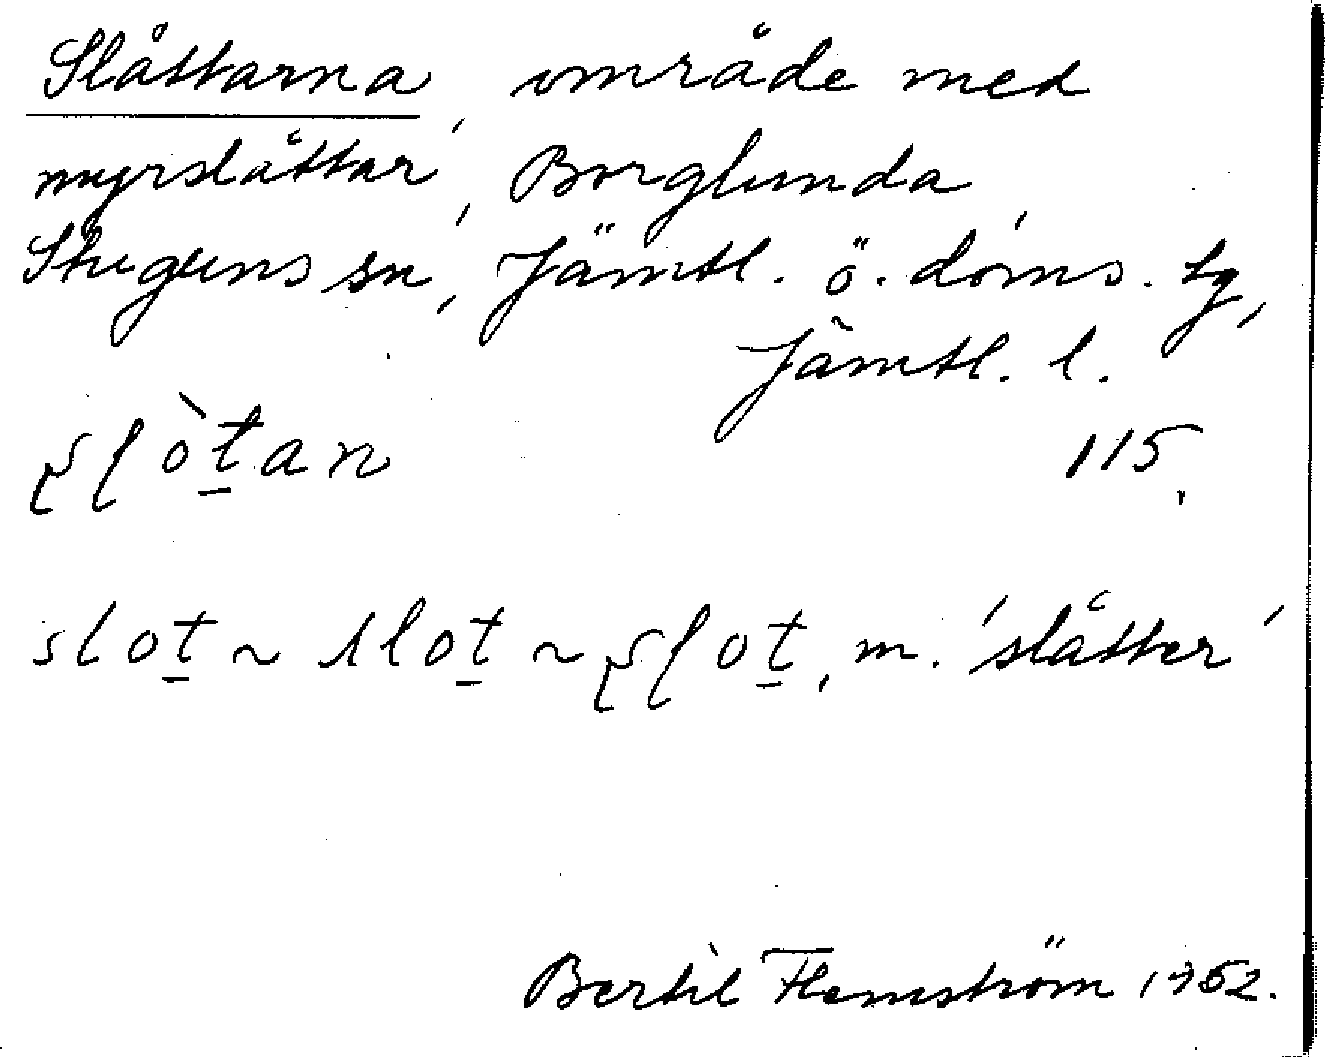 Slåttarna, område med
myrslåttar, Borglunda,
Stuguns sn, Jämtl. ö. doms. tg,
Jämtl. l.
ʂɭòt̲an 115.
slot̲ ~ ſlot̲ ~ ʂɭot̲, m. 'slåtter'
Bertil Flemström 1952.